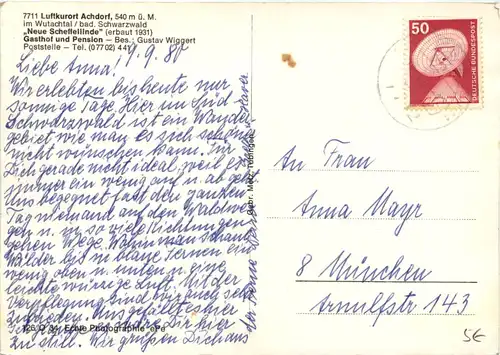 7711 Luftkurort Achdorf, 540 m ü. M.
im Wutachtal / bad. Schwarzwald
„Neue Scheffellinde" (erbaut 1931)
Gasthof und Pension – Bes.: Gustav Wiggert
Poststelle – Tel. (07702) 44
9.9.80
Liebe Anna!
Wir erlebten bis heute nur
sonnige Tage. Hier im Süd-
Schwarzwald ist ein Wander-
gebiet wie man es sich schöner
nicht wünschen kann. Für
Dich gerade nicht ideal, weil es
immer ein wenig auf u. ab geht.
Uns begegnet fast den ganzen
Tag niemand auf den Waldwe-
gen u. in so viele Richtungen
gehen Wege. Wohin man schaut
Wälder bis in blaue Fernen ein
wenig oben u. unten u. eine
leichte würzige Luft. Mit der
Verpflegung sind wir auch sehr
zufrieden.
dir hier
Wir grüßen Dich aus
der Ferne
50
DEUTSCHE BUNDESPOST
An Frau
Anna Mayr
8 München
Arnulfstr 143
Echte Photographie
5€